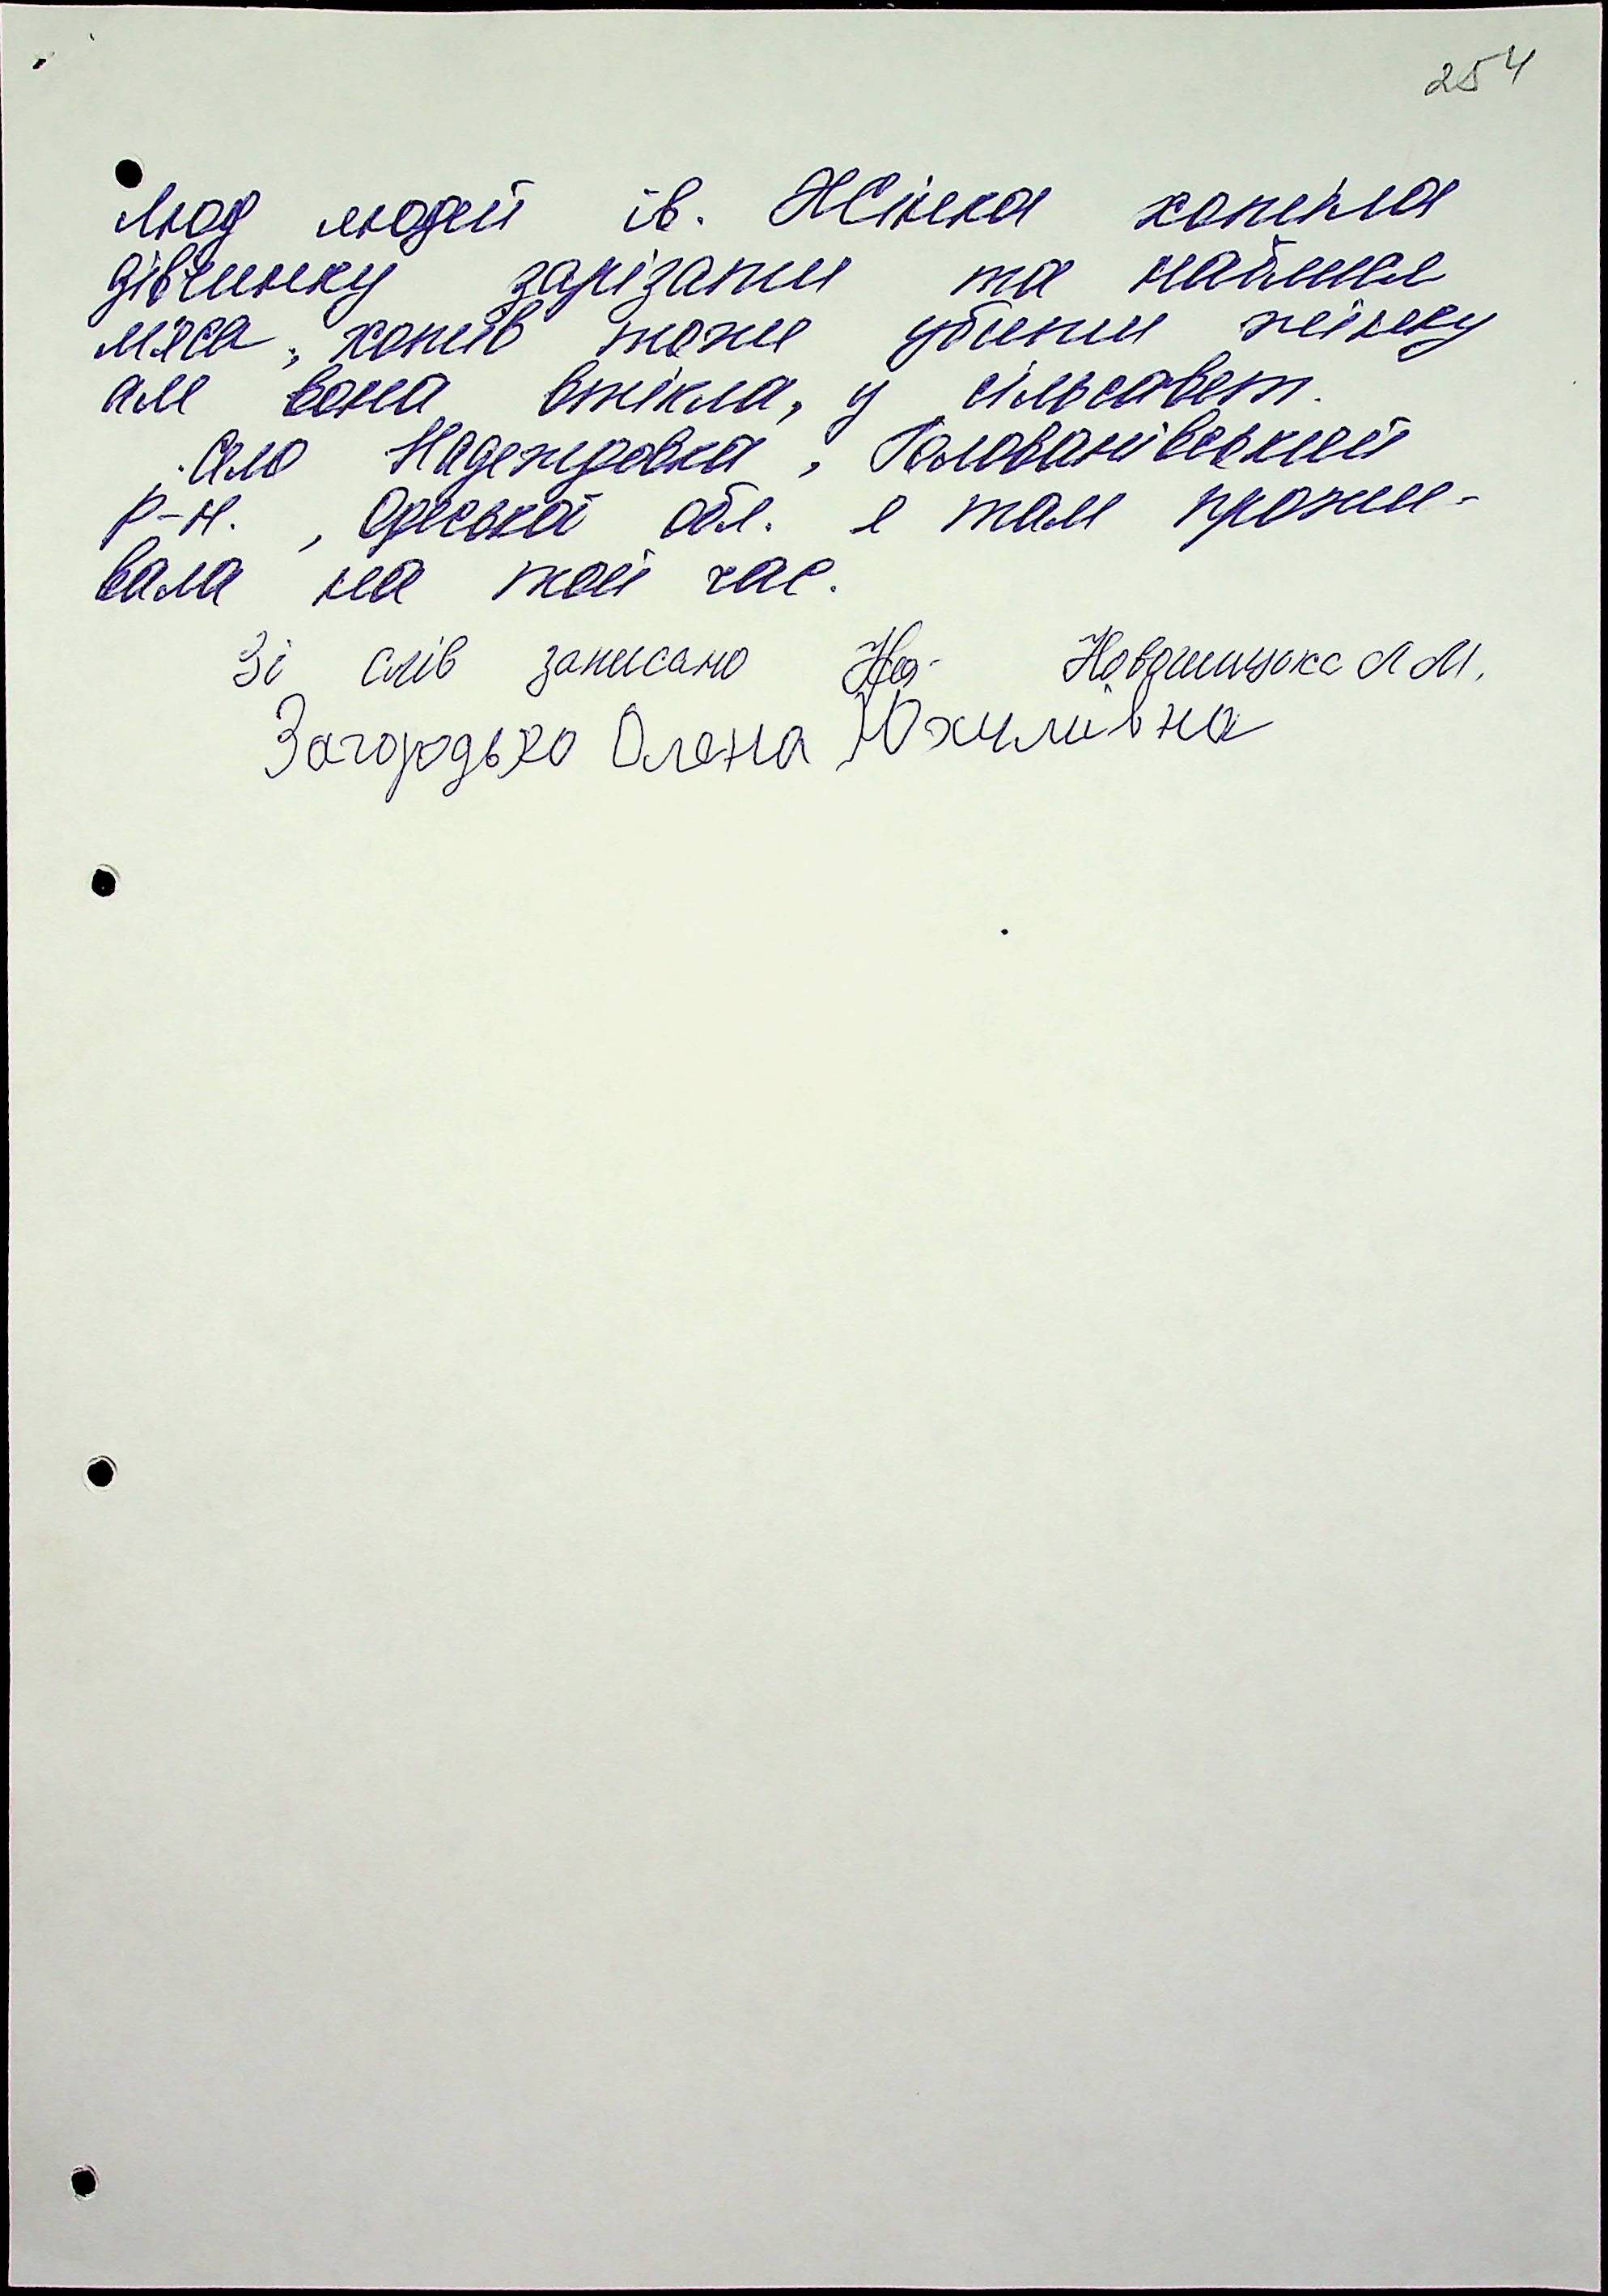 254
Люд людей їв. Жінка хотіла
дівчинку зарізати та найшла
мяса, хотів тоже убити жінку
але вона втікла, у сільсавет.
Село Надеждовка, Голованівський
р-н., Одеської обл. я там прожи-
вала на той час.
Зі слів записано Л М.
Загородько Олена Юхимівна